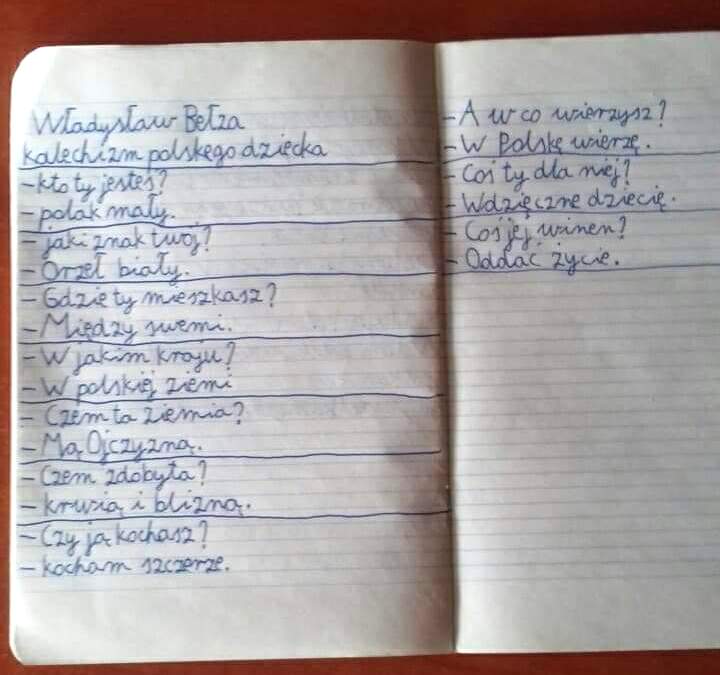 Władysław Bełza
kalechizm polskego dziecka
- kto ty jesteś?
- polak mały.
- jaki znak twój?
- Orzeł biały.
- Gdzie ty mieszkasz?
- Między swemi.
- W jakim kraju?
- W polskiej ziemi
- Czem ta ziemia?
- Mą Ojczyzną.
- Czem zdobyta?
- krwią i blizną.
- Czy ją kochasz?
- kocham szczerze.
- A w co wierzysz?
- W Polskę wierzę.
- Coś ty dla niej?
- Wdzięczne dziecię.
- Coś jej winen?
- Oddać życie.